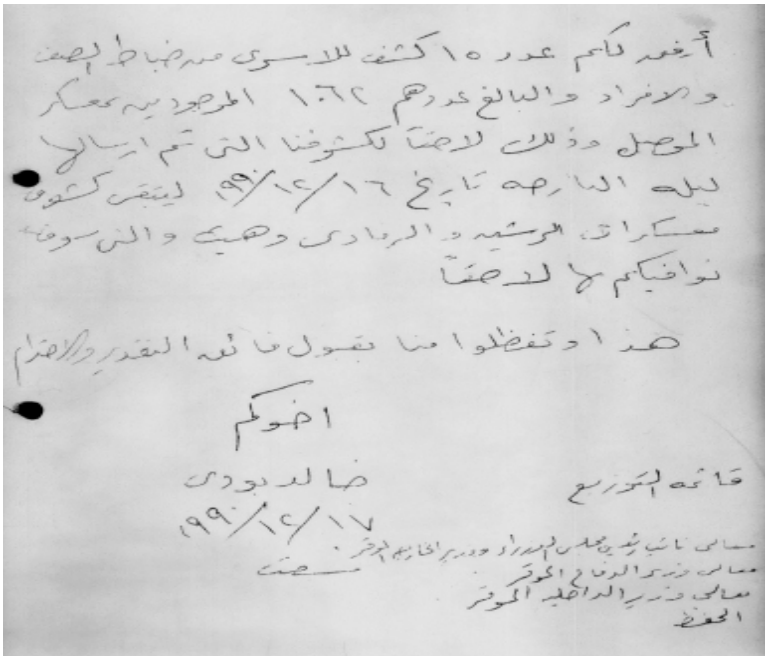 أرفع لكم عدد ١٥ كشف للاسرى من ضباط الصف
والافراد والبالغ عددهم ١٠٦٢ الموجودين بمعسكر
الموصل وذلك لاحقاً لكشوفنا التي تم ارسالها
ليلة البارحه تاريخ ١٦/١٢/١٩٩٠ ليتبقى كشوف
معسكرات الرشيد والرمادي وهيت والتي سوف
نوافيكم بها لاحقاً
هذا وتفظلوا منا بقبول فائق التقدير والاحترام
اخوكم
خالد بودي
١٧/١٢/١٩٩٠
قائمة التوزيع
معالي نائب رئيس مجلس الوزراء ووزير الخارجية الموقر .
معالي وزير الدفاع الموقر
معالي وزير الداخلية الموقر
الحفظ